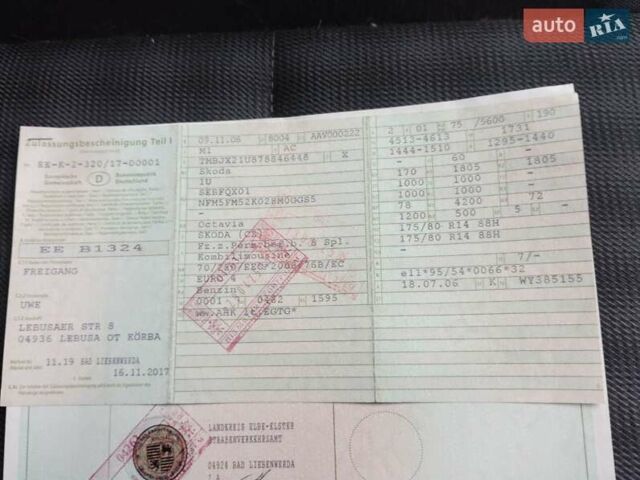 auto RIA
.com
Zulassungsbescheinigung Teil I
EE-K-2-320/17-00001
Europäische Gemeinschaft
D
Bundesrepublik Deutschland
EE B1324
FREIGANG
UWE
LEBUSAER STR 8
04936 LEBUSA OT KÖRBA
11.19 BAD LIEBENWERDA
16.11.2017
09.11.06 8004 AAV000222
M1 AC
TMBJX21U878846448 X
Skoda
1U
SEBFQX01
NFM5FM52K028M0GGS5
-
Octavia
SKODA (CZ)
Fz.z.Pers.bef.b. 8 Spl.
Kombilimousine
EURO 4
Benzin
0001 0482 1595
2 01 75 /5600 190
4513-4613 1731
1444-1510 1295-1440
- 60 -
170 1805 1805
1000 1000 -
1000 1000 -
78 4200 72
1200 500 5 -
175/80 R14 88H
175/80 R14 88H
- 7/-
e11*95/54*0066*32
18.07.06 K WY385155
LANDKREIS ELBE-ELSTER
STRAßENVERKEHRSAMT
04924 BAD LIEBENWERDA